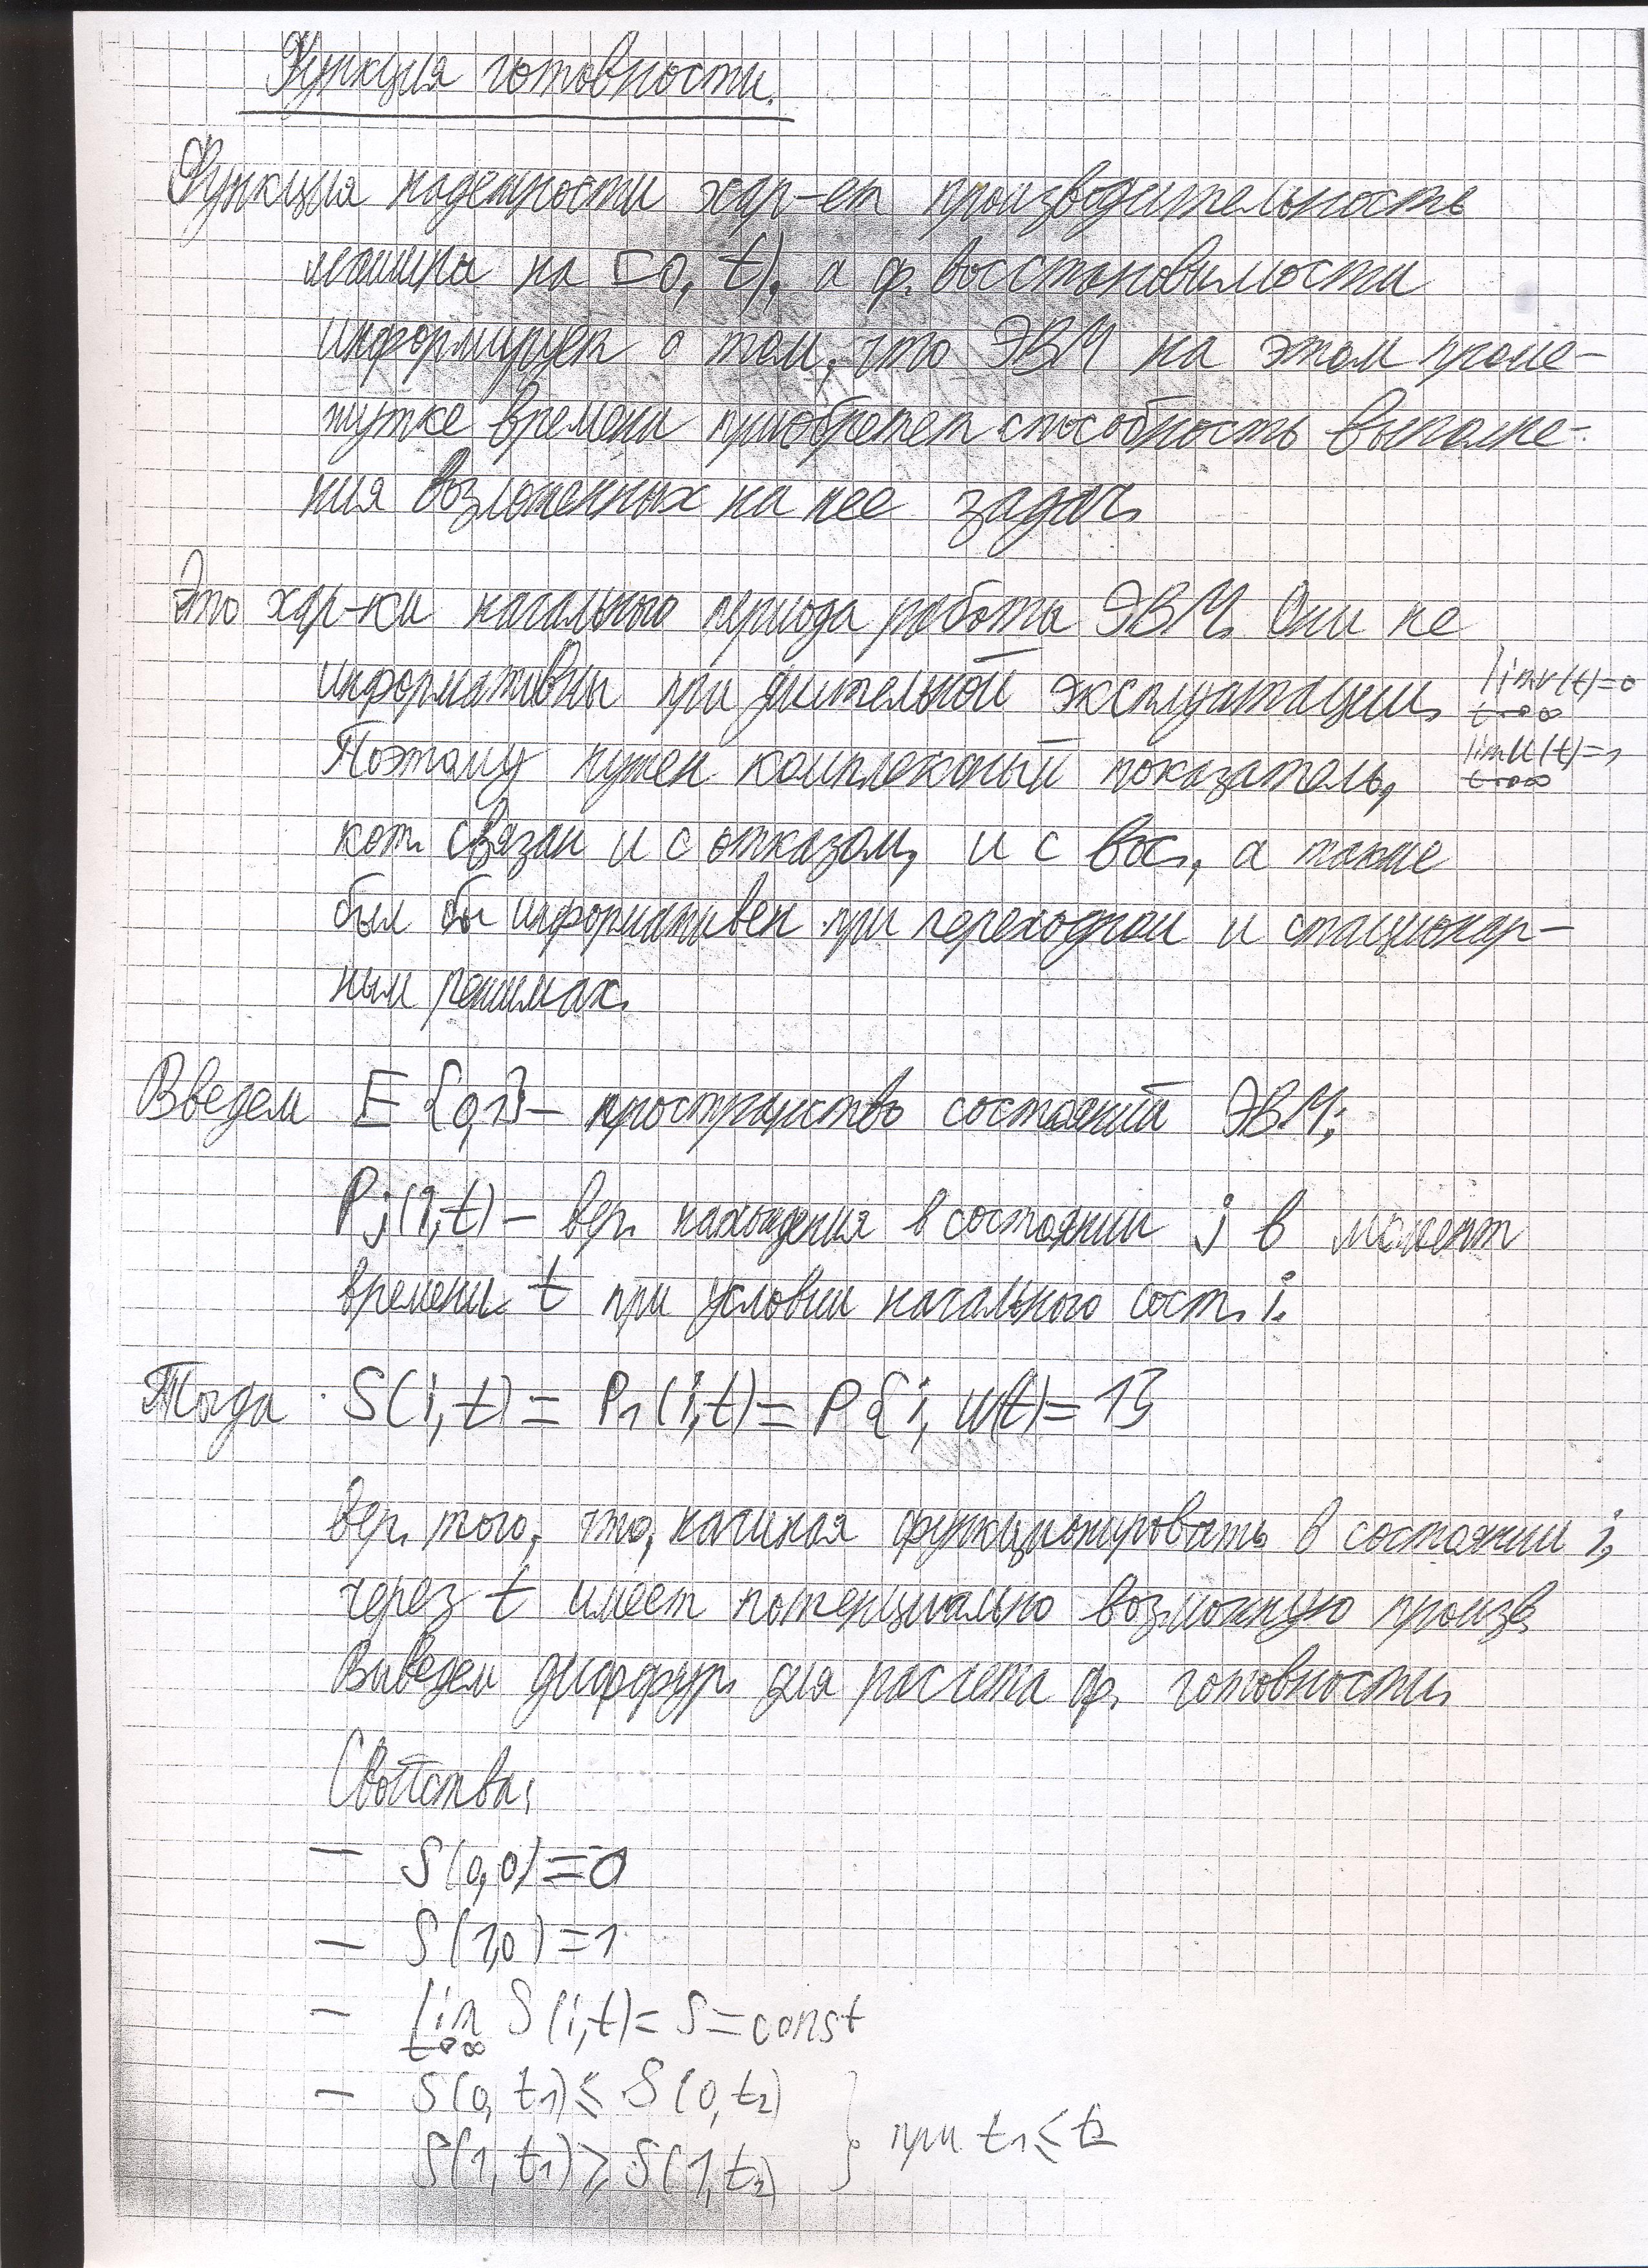 Функция готовности.
Функция надежности хар-ет производительность
машины на [0, t), а ф. восстановимости
информирует о том, что ЭВМ на этом проме-
жутке времени приобретет способность выполне-
ния возложенных на нее задач.
Это хар-ки начального периода работы ЭВМ. Они не
информативны при длительной эксплуатации. lim r(t)=0 t→∞
Поэтому нужен комплексный показатель, lim U(t)=1 t→∞
кот. связан и с отказом, и с вос., а также
был бы информативен при переходном и стационар-
ным режимах.
Введем E {0,1} – пространство состояний ЭВМ;
Pj(i,t) – вер. нахождения в состоянии j в момент
времени t при условии начального сост. i.
Тогда S(i,t) = P1(i,t) = P{i, ω(t) = 1}
вер. того, что, начиная функционировать в состоянии i,
через t имеет потенциально возможную произв.
Выведем диффур. для расчета ф. готовности.
Свойства:
– S(0,0)=0
– S(1,0)=1
– lim S(i,t)= S=const
t→∞
– S(0, t1) ≤ S(0, t2)
S(1, t1) ≥ S(1, t2) } при t1 ≤ t2